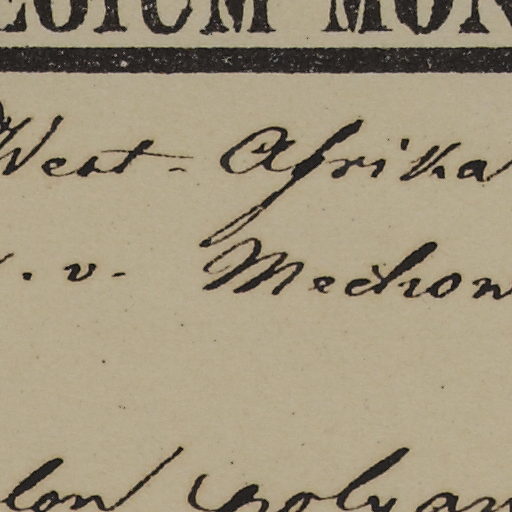 EGIUM MON
West-Afrika
. v. Mechow
lon polyan